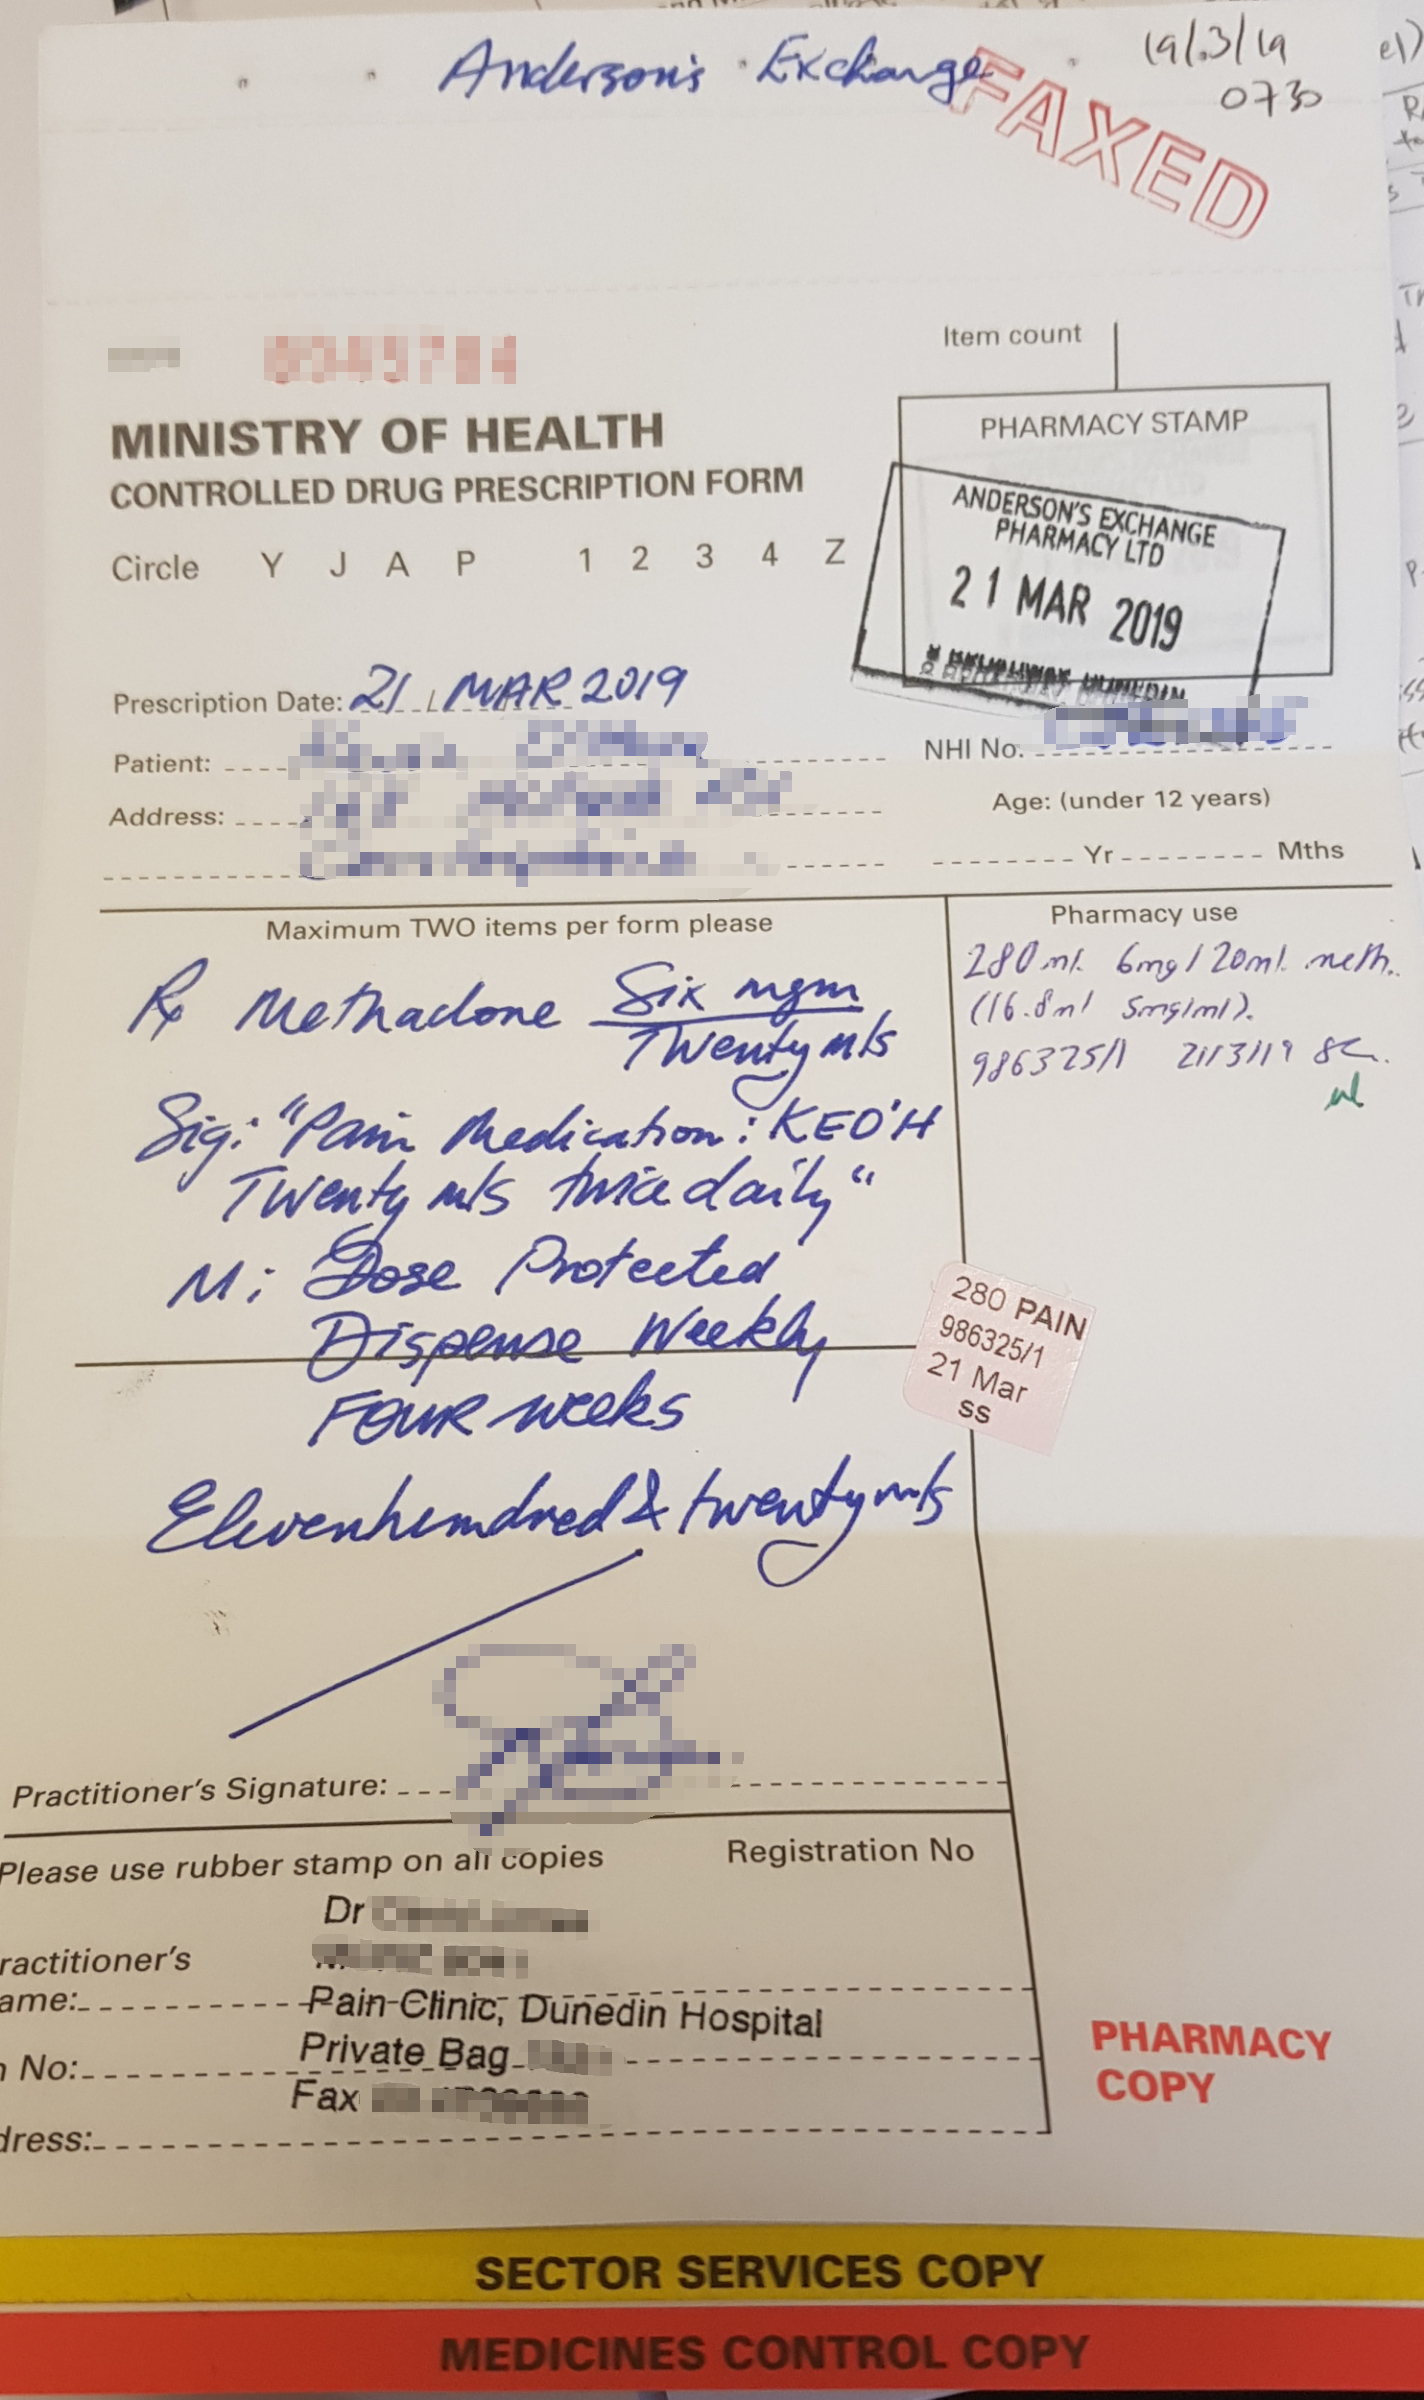 Anderson's Exchange
19/3/19
0730
FAXED
Item count
MINISTRY OF HEALTH
CONTROLLED DRUG PRESCRIPTION FORM
Circle Y J A P 1 2 3 4 Z
PHARMACY STAMP
ANDERSON'S EXCHANGE
PHARMACY LTD
21 MAR 2019
Prescription Date: 21 / MAR 2019
Patient:
NHI No.
Address:
Age: (under 12 years)
Yr Mths
Maximum TWO items per form please
Rx Methadone Six mgm
Twenty mls
Sig: "Pain Medication: KEO'H
Twenty mls twice daily"
M: Dose Protected
Dispense Weekly
FOUR weeks
Elevenhundred & twenty mls
Pharmacy use
280ml. 6mg/20ml. meth.
(16.8ml 5mg/ml).
986325/1 21/3/19
280 PAIN
986325/1
21 Mar
ss
Practitioner's Signature:
Please use rubber stamp on all copies
Registration No
Dr
ractitioner's
ame:
Pain Clinic, Dunedin Hospital
Private Bag
No:
Fax
dress:
PHARMACY
COPY
SECTOR SERVICES COPY
MEDICINES CONTROL COPY